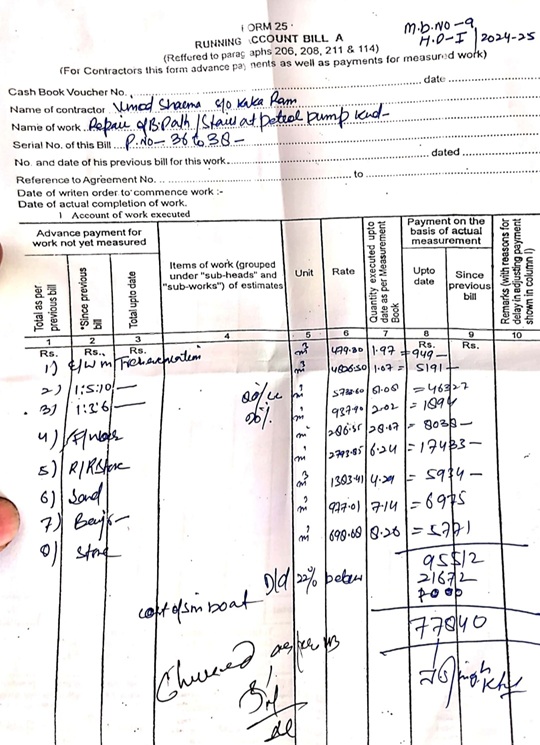 FORM 25
RUNNING ACCOUNT BILL A
M.B.NO-9
H.D-I 2024-25
(Reffered to paragraphs 206, 208, 211 & 114)
(For Contractors this form advance payments as well as payments for measured work)
Cash Book Voucher No. date
Name of contractor Vinod Sharma S/o Kaka Ram
Name of work Repair of B.Path/Stair at petrol pump Kud-
Serial No. of this Bill P.No- 36 to 38-
No. and date of his previous bill for this work. dated
Reference to Agreement No. to
Date of writen order to commence work :-
Date of actual completion of work.
I Account of work executed
Advance payment for work not yet measured
Total as per previous bill
*Since previous bill
Total upto date
Items of work (grouped under "sub-heads" and "sub-works") of estimates
Unit
Rate
Quantity executed upto date as per Measurement Book
Payment on the basis of actual measurement
Upto date
Since previous bill
Remarks (with reasons for delay in adjusting payment shown in column I)
1 2 3 4 5 6 7 8 9 10
Rs. Rs. Rs. Rs. Rs.
1) E/W in m³ 1.97 = 949-
2) 1:5:10 - m³ 1.07 = 5191-
3) 1:3:6 - m³ = 46327
m² 2.02 = 1894
4) F/work m² = 8038-
5) R/R Stone m³ 6.24 = 17433-
6) Sand m³ 1383.41 4.29 = 5934-
7) m³ 977.01 7.14 = 6975
8) Stone m³ 698.68 8.26 = 5771
95512
D/d 22% below 21672
cost of 
77840
as per MB